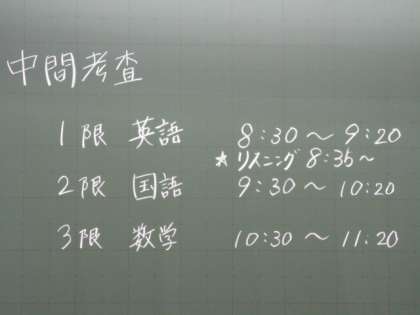 中間考査
1限 英語 8:30～9:20
★リスニング 8:35～
2限 国語 9:30～10:20
3限 数学 10:30～11:20